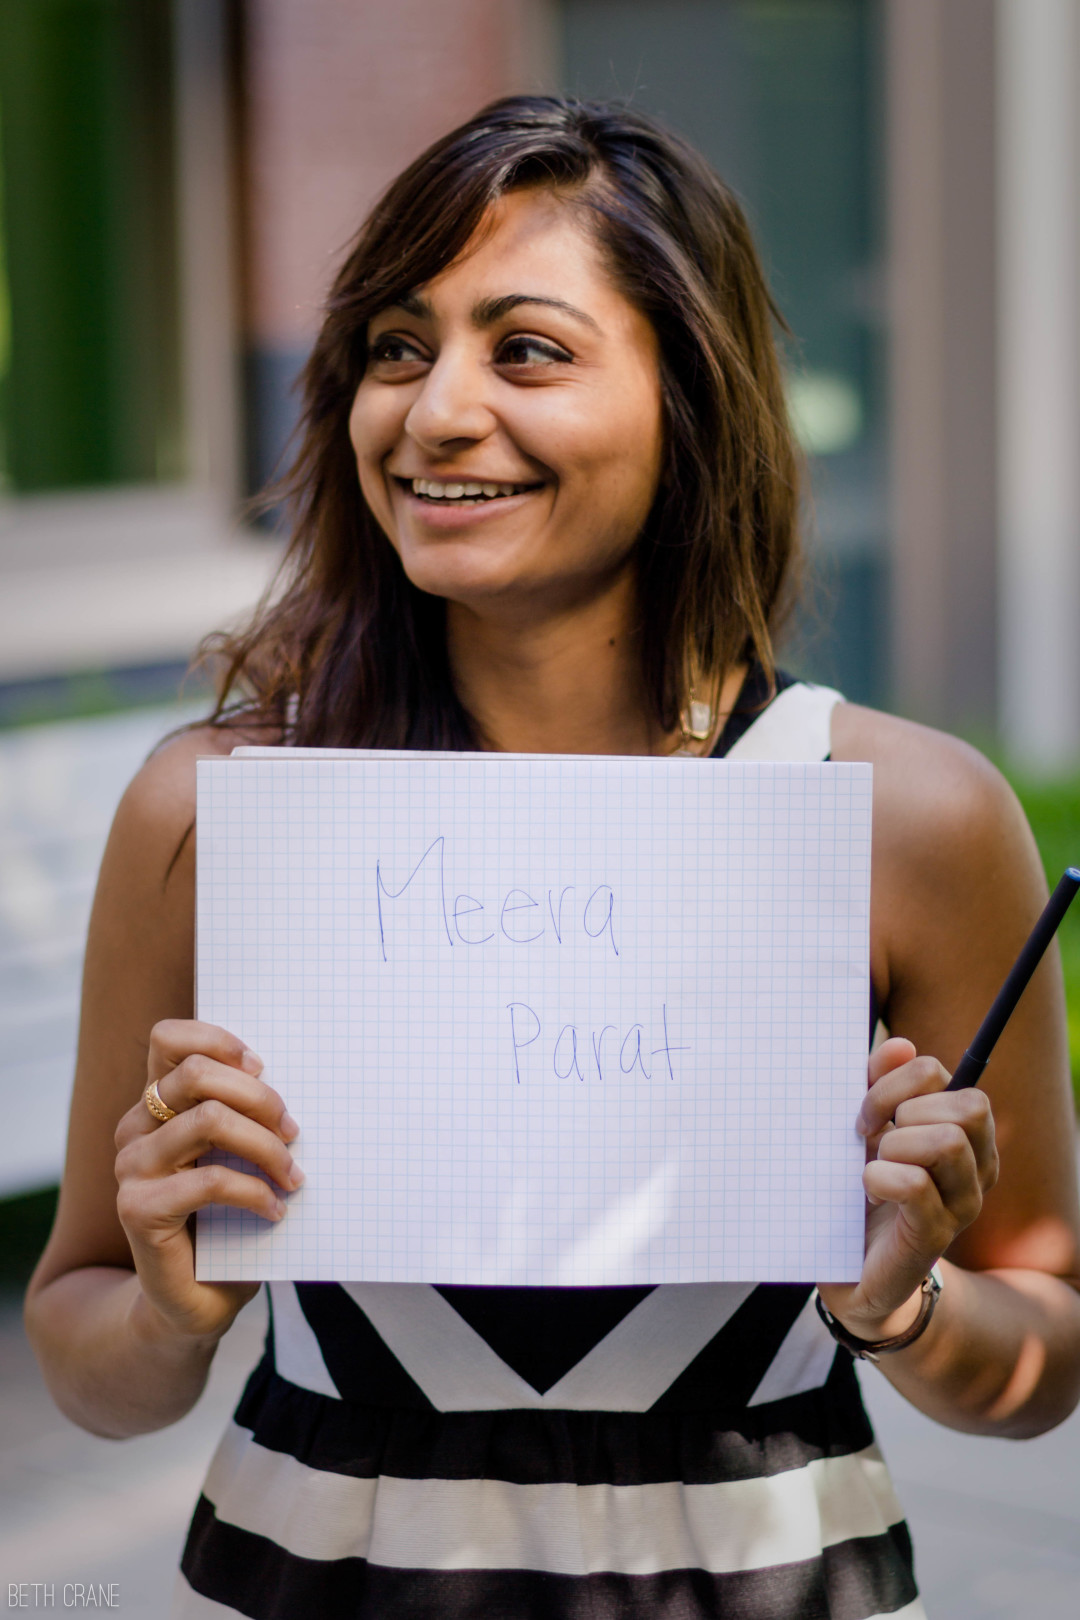 Meera
Parat
BETH CRANE